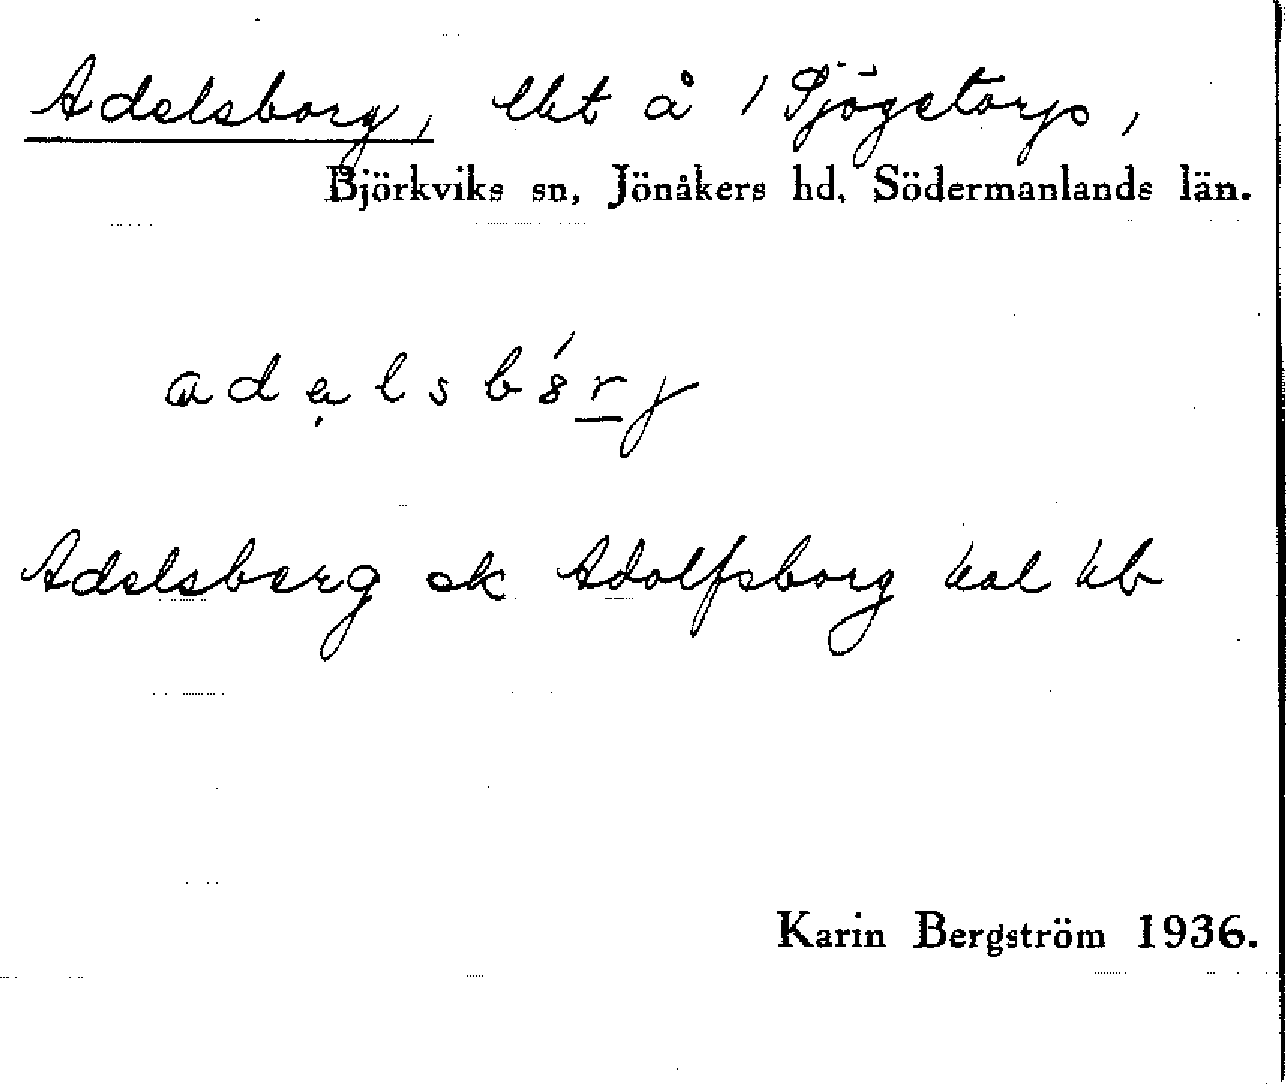 Adelsborg, lht å 1 Sjögetorp,
Björkviks sn, Jönåkers hd, Södermanlands län.
adelsbórj
Adelsberg ek Adolfsborg kal kb
Karin Bergström 1936.